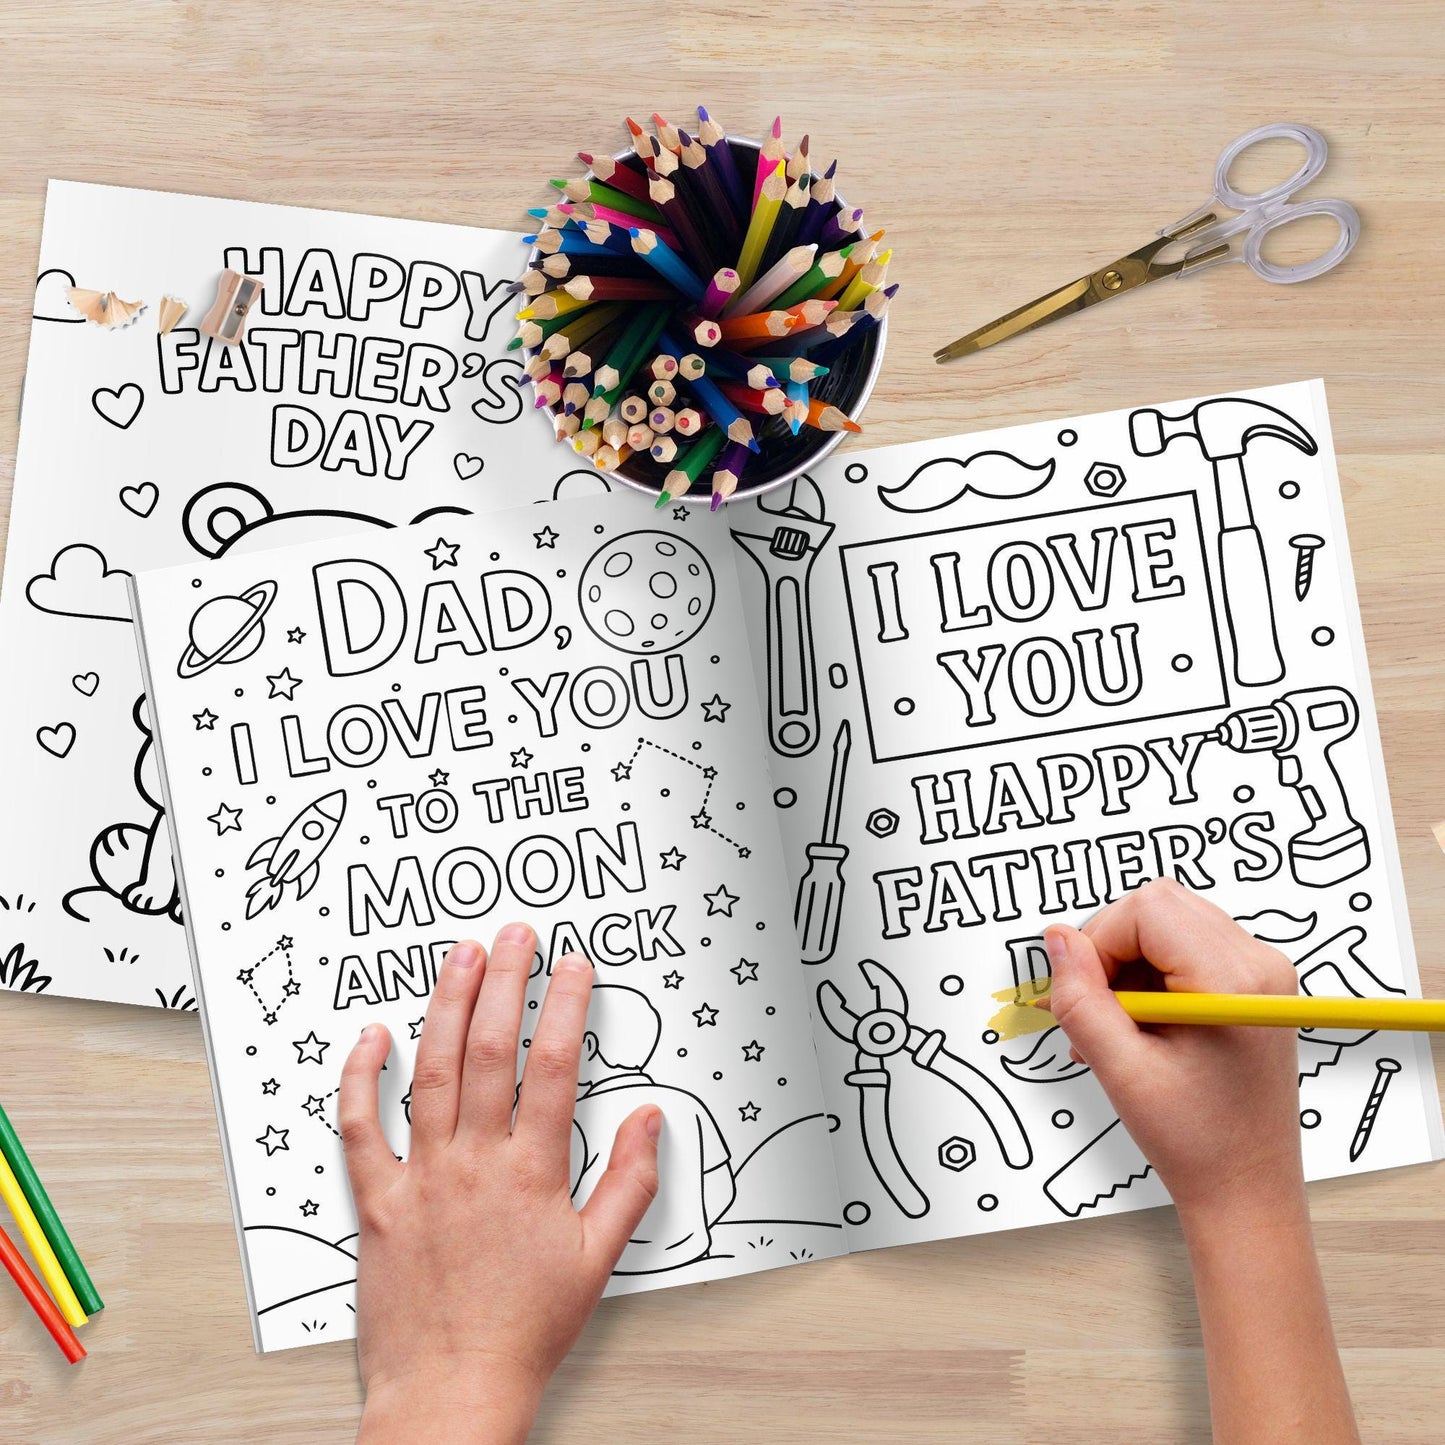 HAPPY
FATHER'S
DAY
DAD,
I LOVE YOU
TO THE
MOON
AND BACK
I LOVE
YOU
HAPPY
FATHER'S
D